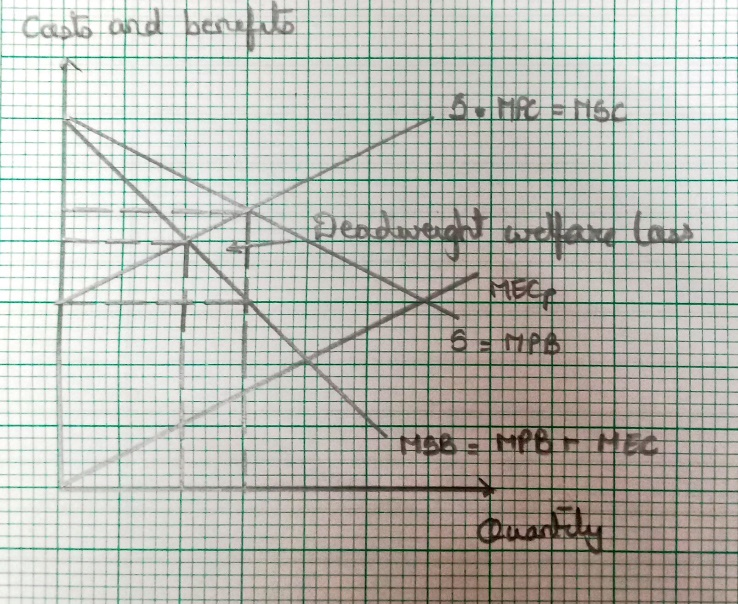 Costs and benefits
S = MPC = MSC
Deadweight welfare loss
MECp
S = MPB
MSB = MPB - MEC
Quantity